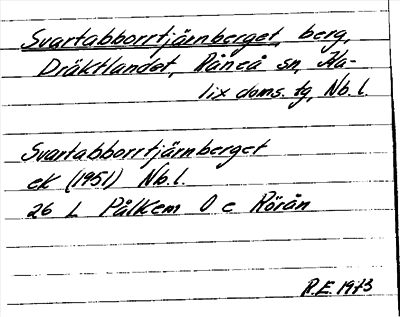 Svartabborrtjärnberget, berg,
Dräktlandet, Råneå sn, Ka-
lix doms. tg, Nb. l.
Svartabborrtjärnberget
ek (1951) Nb. l.
26 L Pålkem 0 e Rörån
R.E. 1973